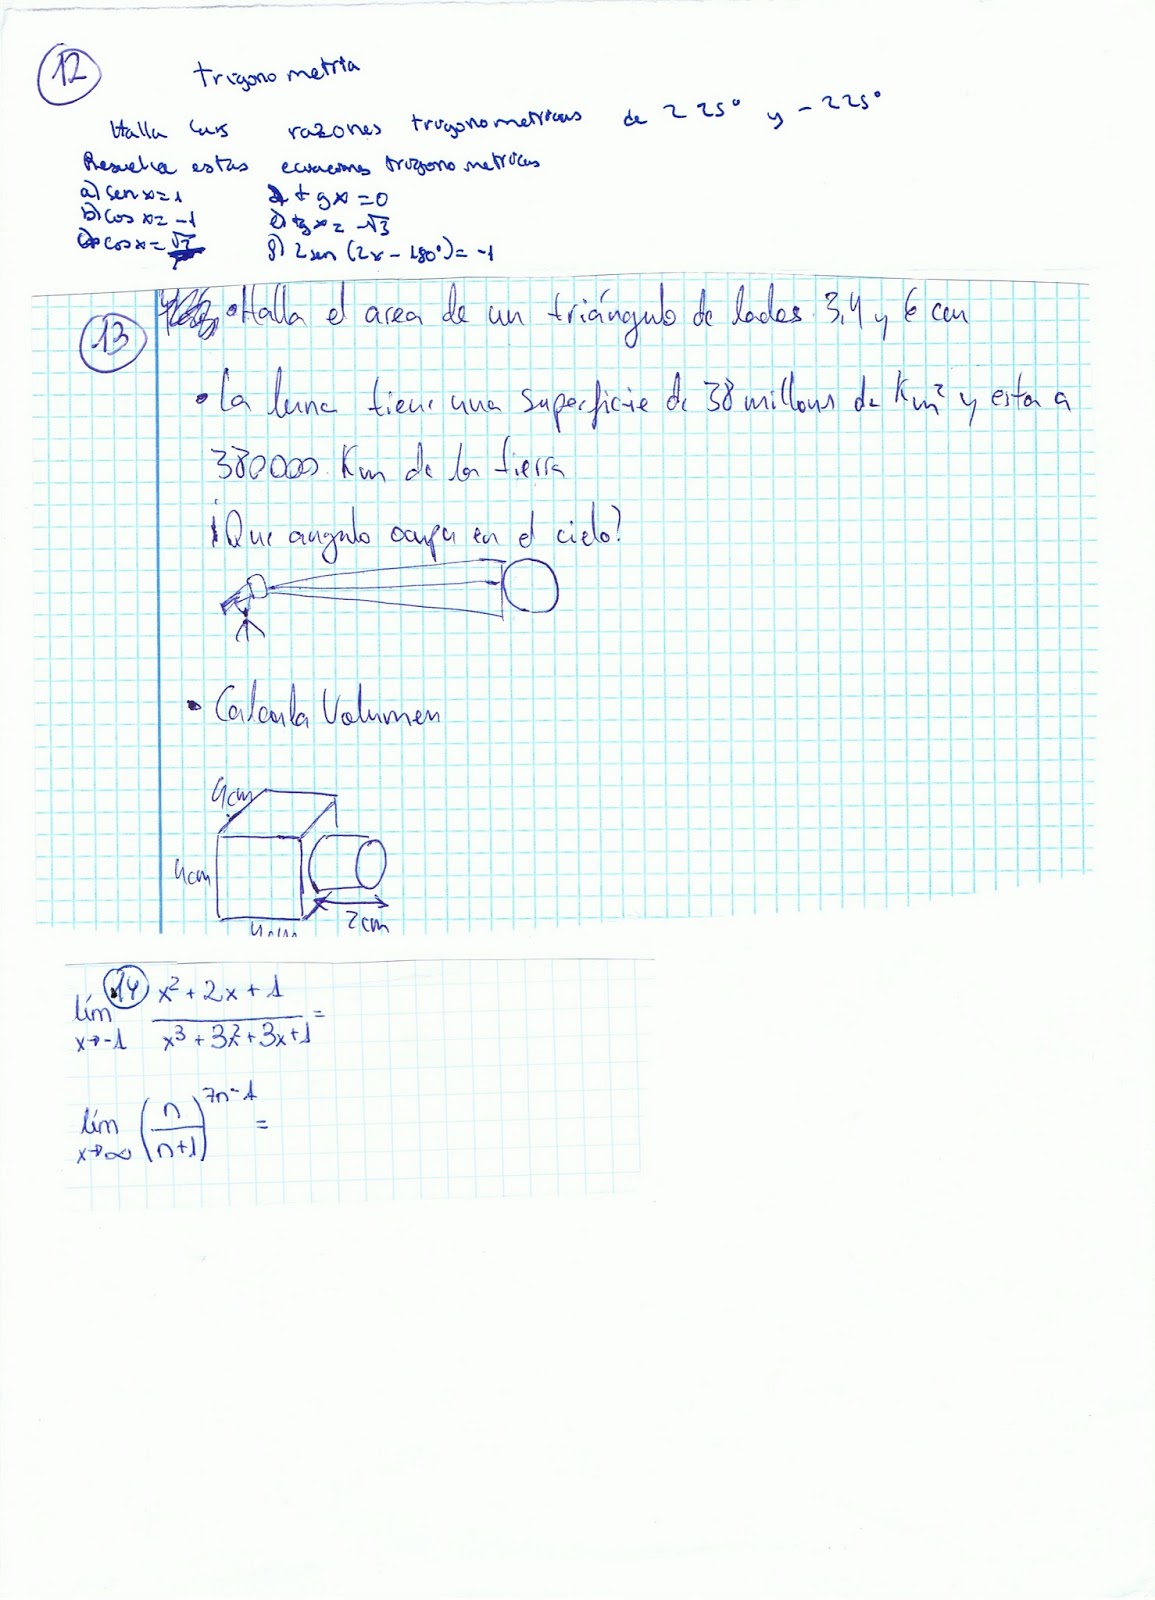 12
trigonometria
Halla las razones trigonometricas de 225° y -225°
Resuelva estas ecuaciones trigonometricas
a) sen x = 1 d) tg x = 0
b) cos x = -1 e) tg x = -√3
c) cos x = g) 2 sen (2x - 180°) = -1
13
• Halla el area de un triángulo de lados 3,4 y 6 cm
• La luna tiene una superficie de 38 millons de Km² y esta a
380000 Km de la tierra
¡Que angulo ocupa en el cielo?
• Calcula Volumen
4cm
4cm
4cm
2cm
14
lím x→-1 (x² + 2x + 1)/(x³ + 3x² + 3x + 1) =
lím x→∞ (n/(n+1))^(7n-1) =